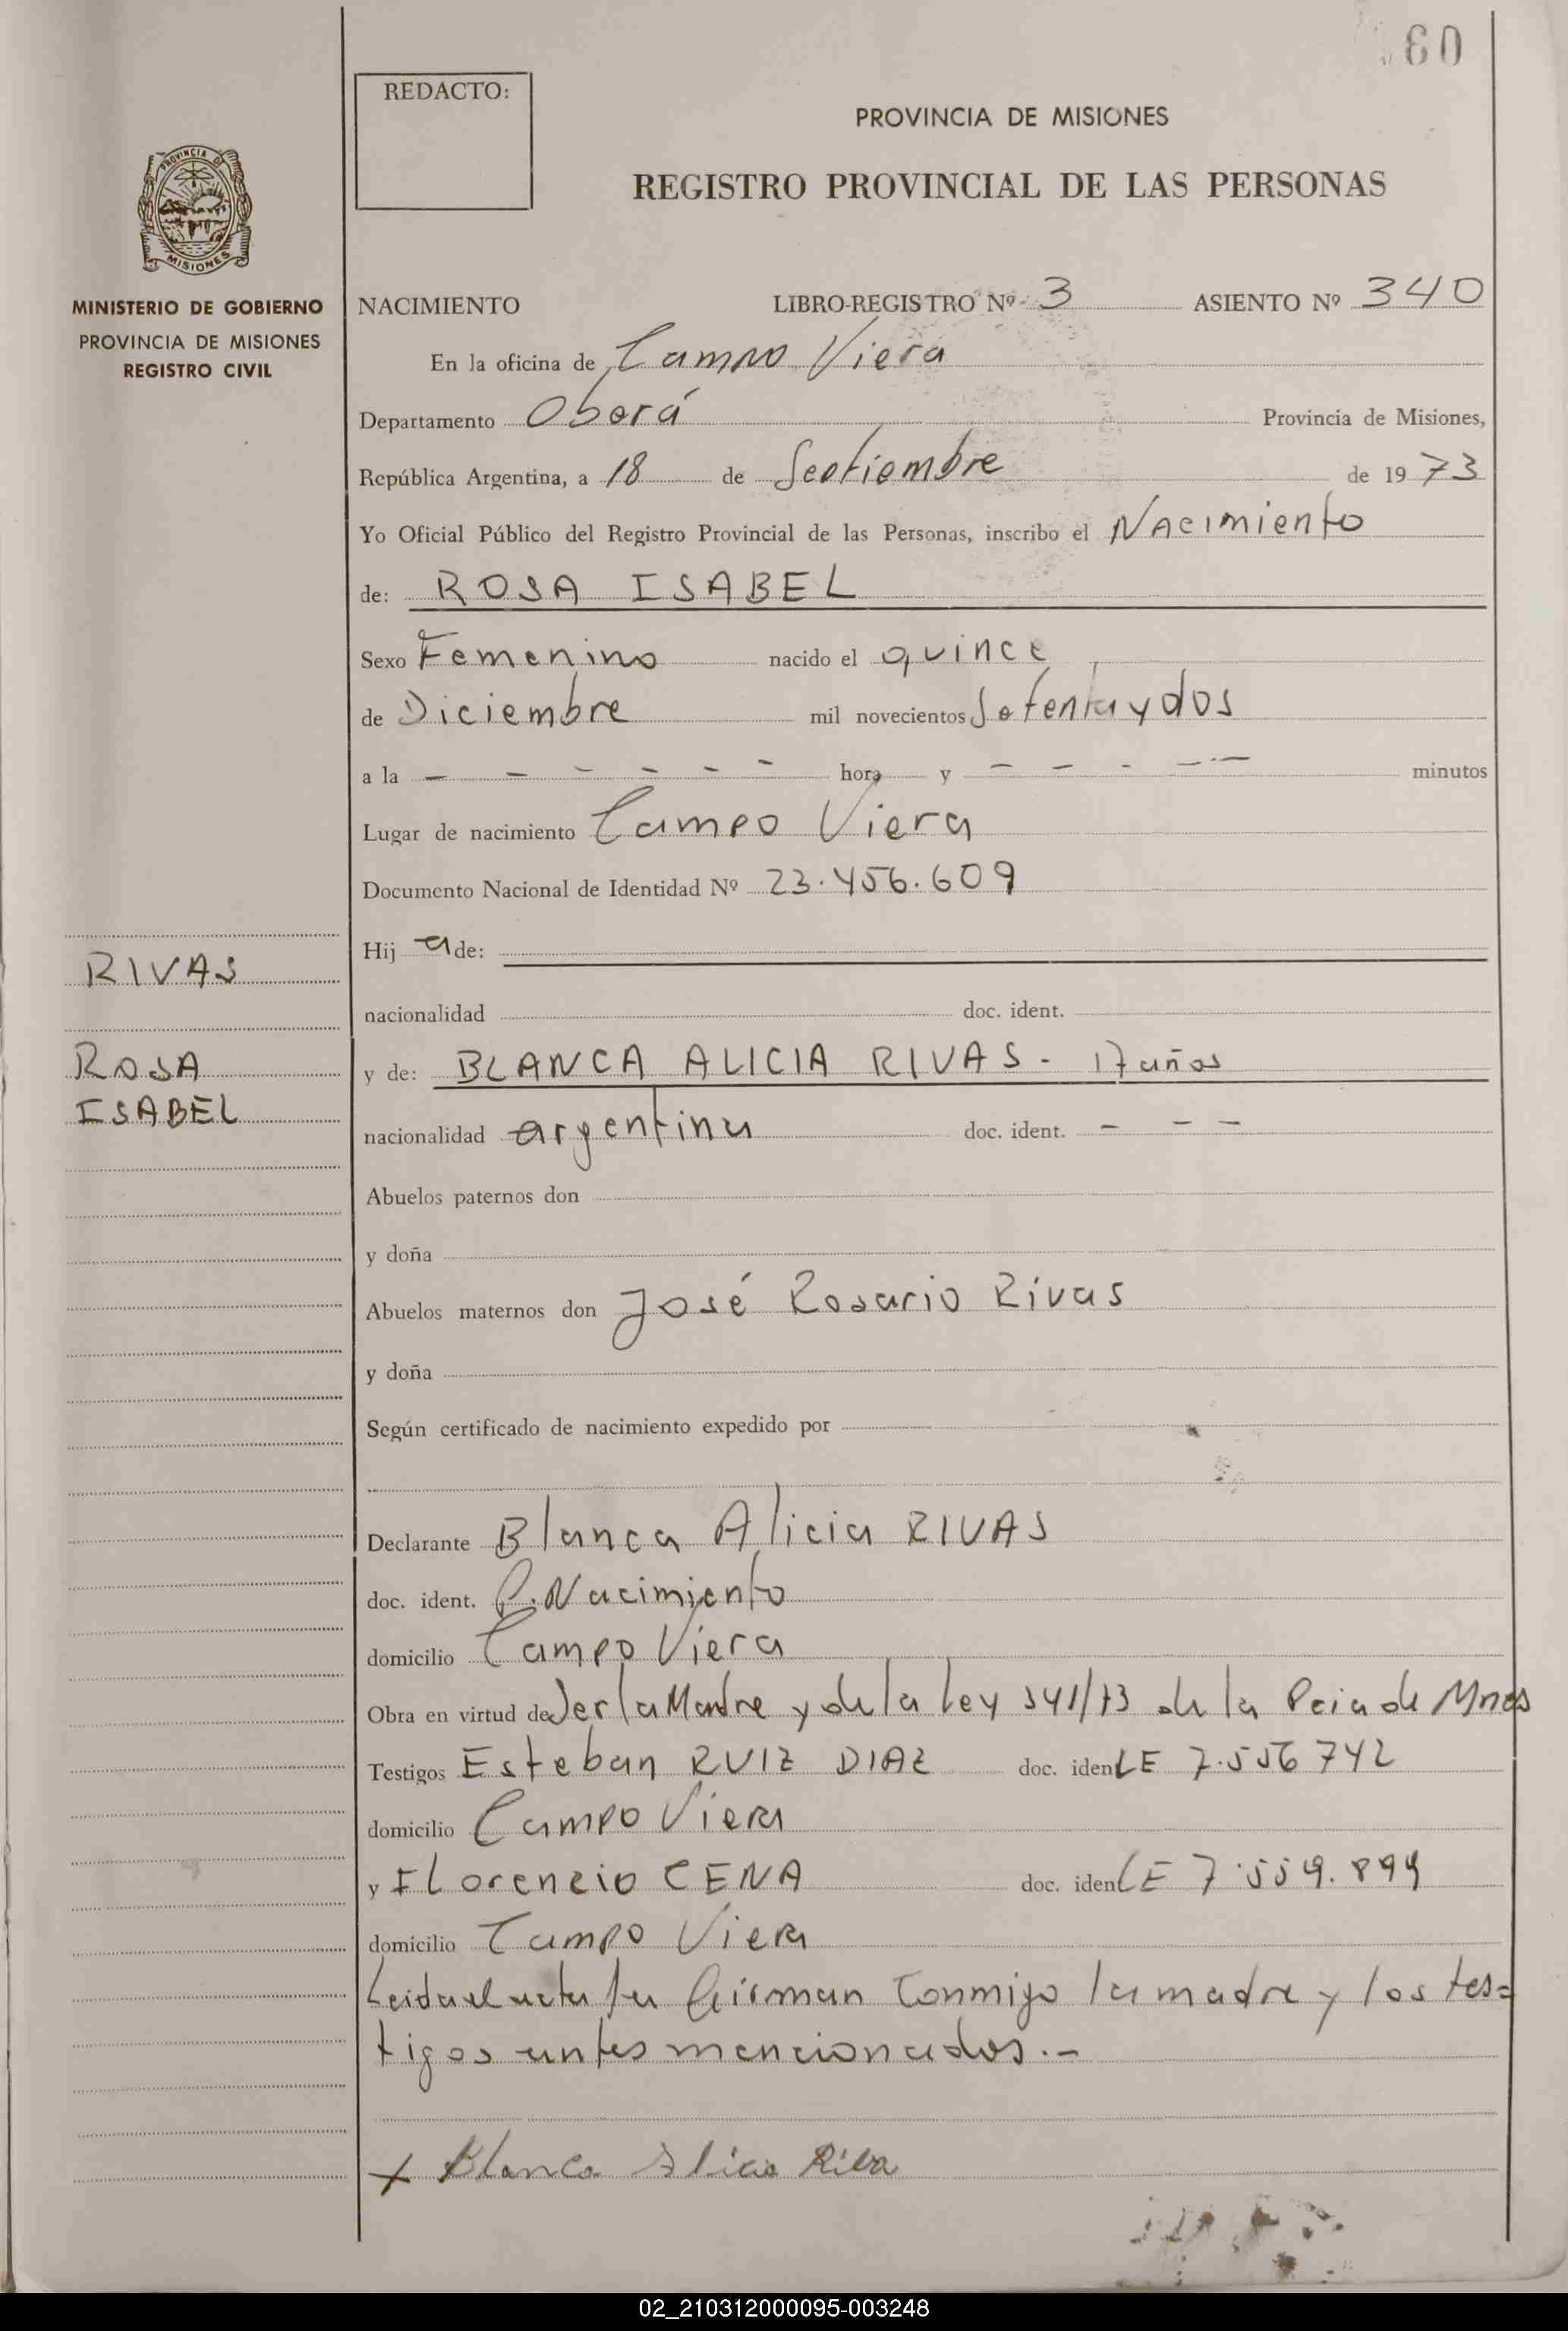 60
REDACTO:
PROVINCIA DE MISIONES
REGISTRO PROVINCIAL DE LAS PERSONAS
PROVINCIA DE
MISIONES
MINISTERIO DE GOBIERNO
PROVINCIA DE MISIONES
REGISTRO CIVIL
NACIMIENTO LIBRO-REGISTRO Nº 3 ASIENTO Nº 340
En la oficina de Campo Viera
Departamento Oberá Provincia de Misiones,
República Argentina, a 18 de Septiembre de 1973
Yo Oficial Público del Registro Provincial de las Personas, inscribo el Nacimiento
de: ROSA ISABEL
Sexo Femenino nacido el quince
de Diciembre mil novecientos Setenta y dos
a la – – – – – – hora y – – – – – minutos
Lugar de nacimiento Campo Viera
Documento Nacional de Identidad Nº 23.456.609
Hija de:
RIVAS
nacionalidad doc. ident.
ROSA
ISABEL
y de: BLANCA ALICIA RIVAS - 17 años
nacionalidad argentina doc. ident. – – –
Abuelos paternos don
y doña
Abuelos maternos don José Rosario Rivas
y doña
Según certificado de nacimiento expedido por
Declarante Blanca Alicia RIVAS
doc. ident. P. Nacimiento
domicilio Campo Viera
Obra en virtud de Ser la Madre y de la Ley 341/73 de la Pcia de Mnes
Testigos Esteban RUIZ DIAZ doc. iden LE 7.556742
domicilio Campo Viera
y Florencio CENA doc. iden LE 7.559.899
domicilio Campo Viera
Leida el acta la firman Conmigo la madre y los tes=
tigos antes mencionados.–
x Blanca Alicia Riba
02_210312000095-003248